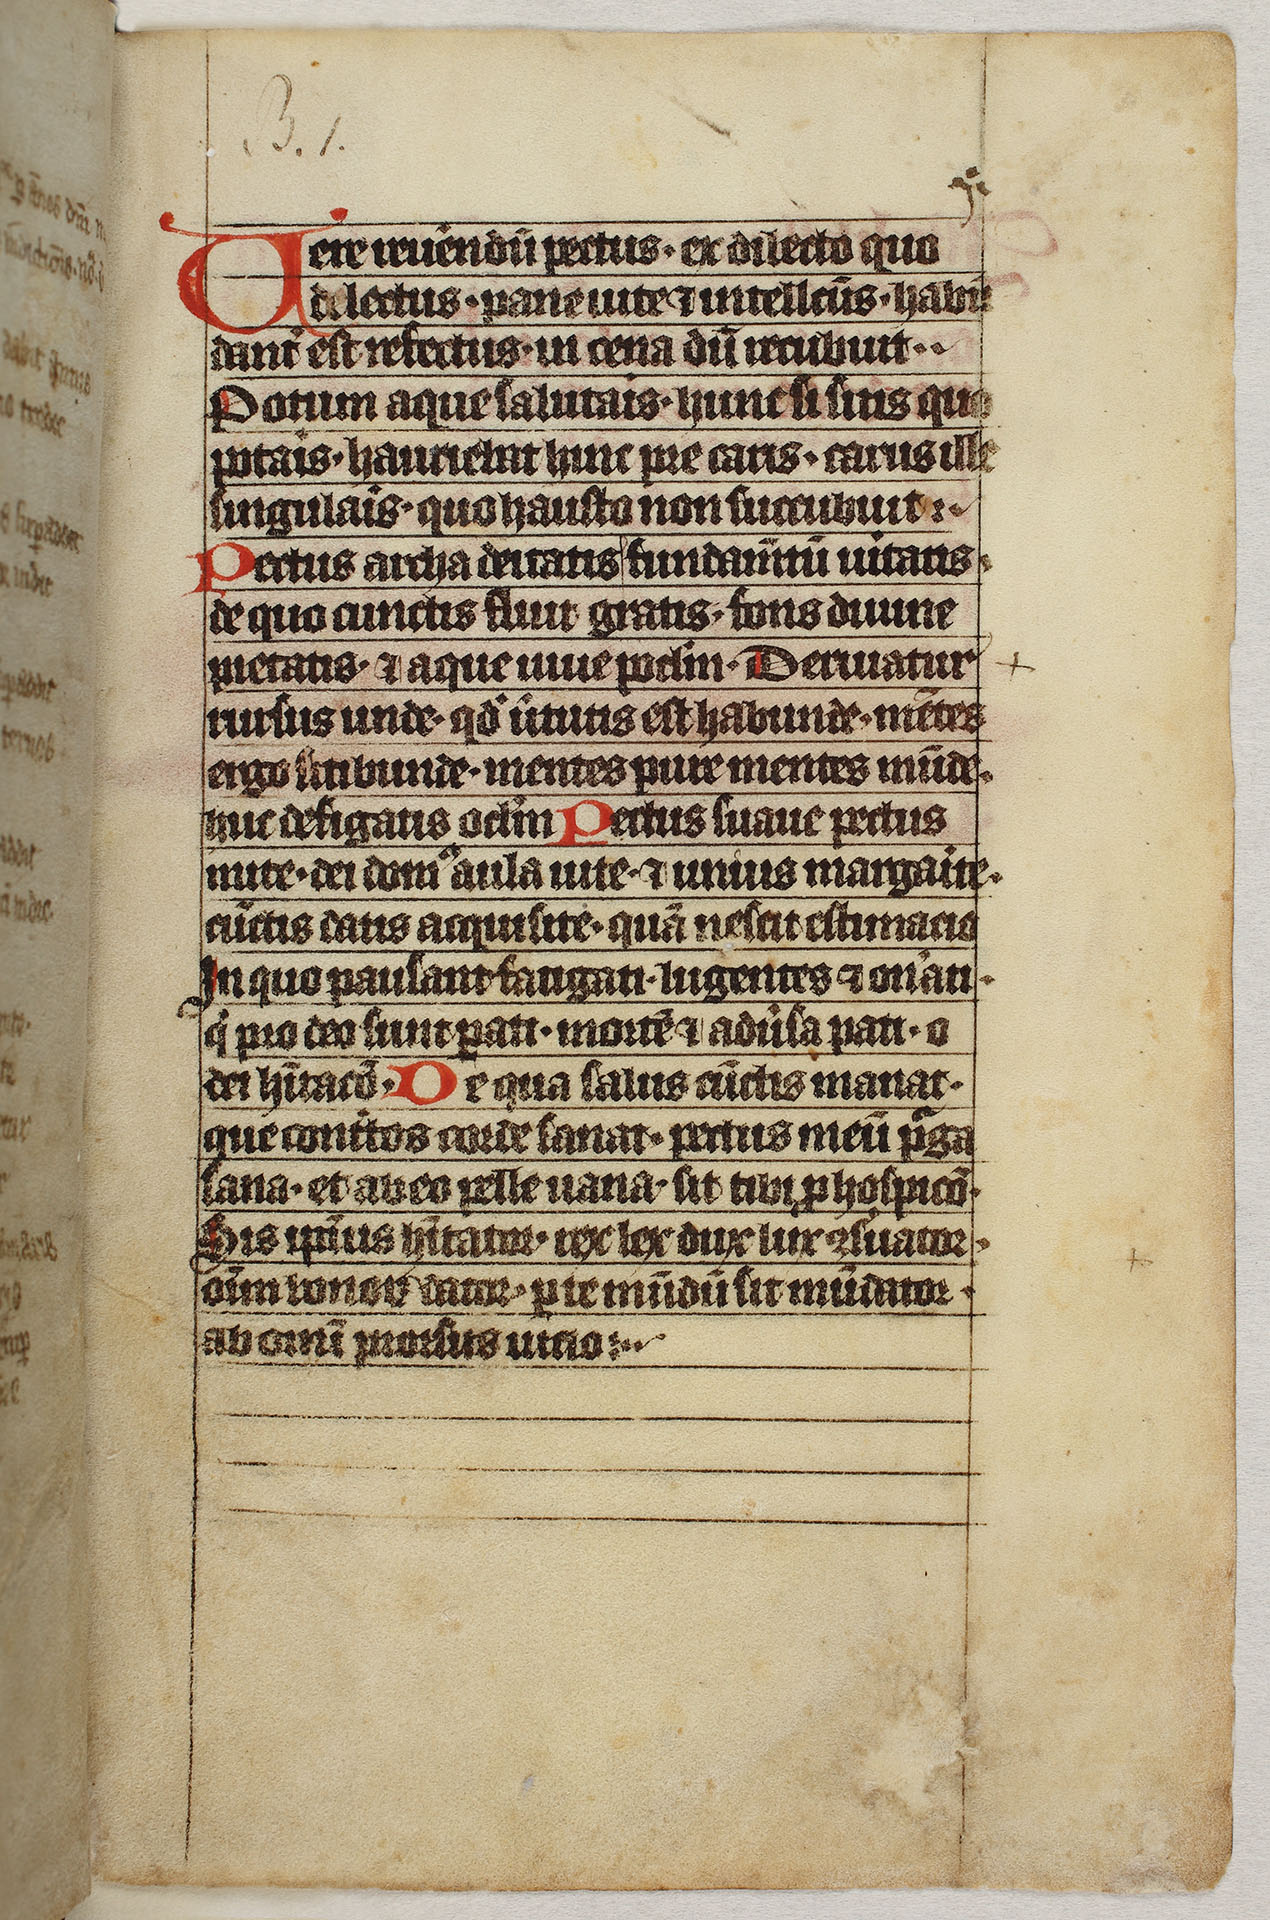 B. 1.
Uere reuerendū pectus · ex dilecto quo
dilectus · pane uite ⁊ intellcūs · habū
dant᷑ est refectus · in cena dū recubuit ··
Potum aque salutaís · hunc si sitis quo
potaís · hauriebat hinc pre caris · carus ille
singulaís · quo hausto non succubuit :·
Pectus archa deitatis fundam̄tū uítatis ·
de quo cunctis fluit gratis · fons diuine
pietatis · ⁊ aque uiue poclm̄ · Deriuatur
rursus unde · qd' uͥtutis est habunde · mētes
ergo sitibunde · mentes pure mentes mūde ·
huc defigatis oclm̄ Pectus suaue pectus
mite · dei domꝰ aula uite · ⁊ unius margaíte ·
cūctis datis acquisite · quā nescit estimacio
In quo pausant fatigati · lugentes ⁊ on'ati ·
qͥ pro deo sunt pati · mortē ⁊ aduͥsa pati · o
dei hītacō · De qua salus cūctis manat ·
que contͥtos corde sanat · pectus meū pᷓga
sana · et ab eo pelle uana · sit tibi ꝑ hospicō ·
Sis ipīus hītator · rex lex dux lux ꝯsuator ·
oīm bonoꝝ dator · ꝑ te mūdū sit mūdator ·
ab omī prorsus uicio :··